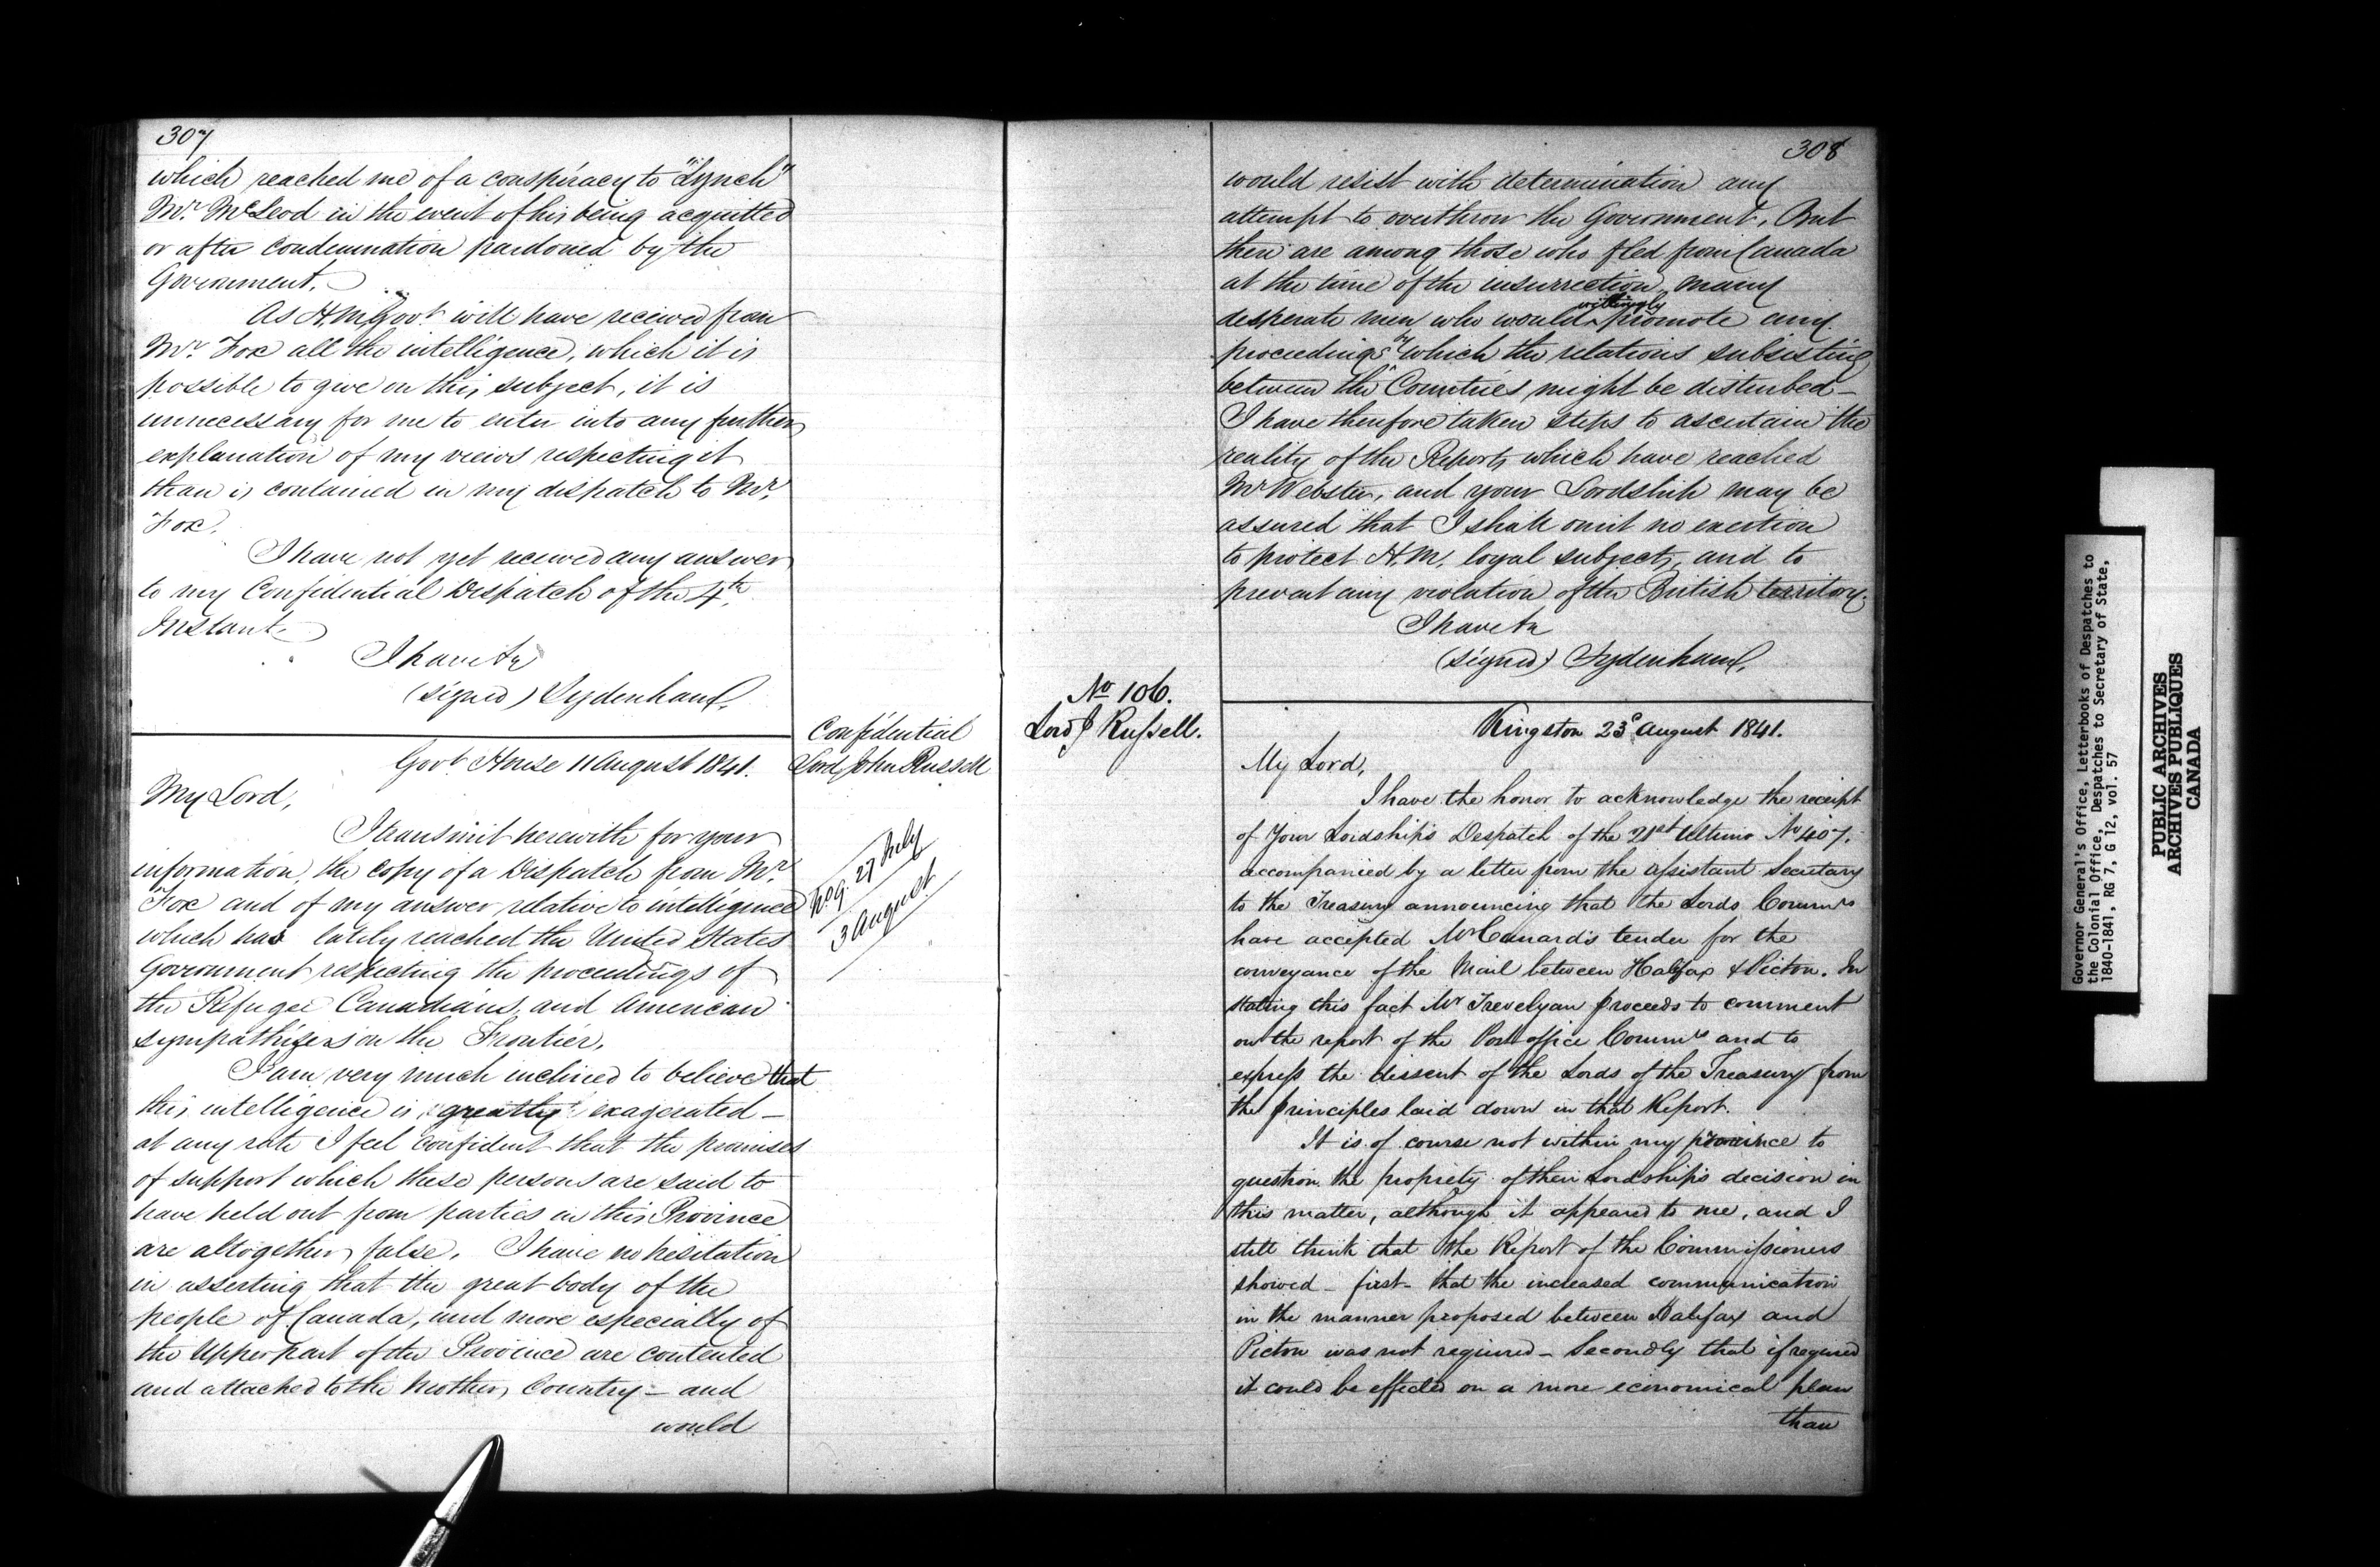 307
which reached me of a conspiracy to "Lynch"
Mr. McLeod in the event of his being acquitted
or after condemnation pardoned by the
Government.
As H.M. Govt. will have received from
Mr. Fox all the intelligence, which it is
possible to give on this subject, it is
unnecessary for me to enter into any further
explanation of my views respecting it
than is contained in my dispatch to Mr.
Fox.
I have not yet received any answer
to my Confidential Despatch of the 4th.
Instant.
I have &c
(signed) Sydenham.
Confidential
Lord John Russell
Govt. House 11 August 1841.
My Lord,
I transmit herewith for your
information, the copy of a Dispatch from Mr.
Fox and of my answer relative to intelligence
No. 9. 27 July
3 August
which has lately reached the United States
Government respecting the proceedings of
the Refugee Canadians, and American
sympathizers on the Frontier.
I am very much inclined to believe that
this intelligence is greatly exagerated —
at any rate I feel confident that the promises
of support which these persons are said to
have held out from parties in this Province
are altogether false. I have no hesitation
in asserting that the great body of the
people of Canada, and more especially of
the Upper part of the Province are contented
and attached to the Mother Country — and
would
308
would resist with determination any
attempt to overthrow the Government. But
there are among those who fled from Canada
at the time of the insurrection, many
desperate men who would willingly promote any
proceedings by which the relations subsisting
between the Countries might be disturbed —
I have therefore taken steps to ascertain the
reality of the Reports which have reached
Mr Webster, and your Lordship may be
assured that I shall omit no exertion
to protect H.M. loyal subjects, and to
prevent any violation of the British territory.
I have &c
(signed) Sydenham.
No 106.
Lord J Russell.
Kingston 23d August 1841.
My Lord,
I have the honor to acknowledge the receipt
of Your Lordship's Despatch of the 21st Ultimo No 407.
accompanied by a letter from the Assistant Secretary
to the Treasury announcing that the Lords Commrs
have accepted Mr Cunard's tender for the
conveyance of the Mail between Halifax & Picton. In
stating this fact Mr Trevelyan proceeds to comment
on the report of the Post office Commrs and to
express the dissent of the Lords of the Treasury from
the principles laid down in that Report.
It is of course not within my province to
question the propriety of their Lordships decision in
this matter, although it appeared to me, and I
still think that the Report of the Commissioners
showed — first — that the increased communication
in the manner proposed between Halifax and
Picton was not required — Secondly that if required
it could be effected on a more economical plan
than
Governor General's Office, Letterbooks of Despatches to
the Colonial Office, Despatches to Secretary of State,
1840-1841, RG 7, G 12, vol. 57
PUBLIC ARCHIVES
ARCHIVES PUBLIQUES
CANADA